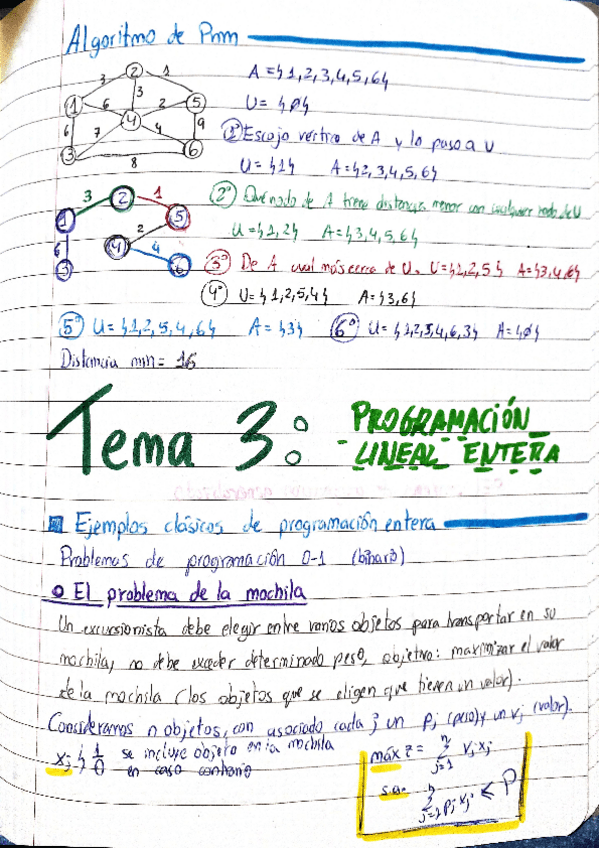 Algoritmo de Prim
A = {1,2,3,4,5,6}
U = {ø}
1º Escojo vértice de A y lo paso a U
U = {1} A = {2,3,4,5,6}
2º Qué nodo de A tiene distancia menor con cualquier nodo de U
U = {1,2} A = {3,4,5,6}
3º De A cual más cerca de U. U = {1,2,5} A = {3,4,6}
4º U = {1,2,5,4} A = {3,6}
5º U = {1,2,5,4,6} A = {3} 6º U = {1,2,5,4,6,3} A = {ø}
Distancia min = 16
1 2 3 4 5 6
3 1 6 3 2 9 6 7 4 8
1 2 3 4 5 6
3 1 2 6 4
Tema 3: PROGRAMACIÓN
LINEAL ENTERA
Ejemplos clásicos de programación entera
Problemas de programación 0-1 (binario)
El problema de la mochila
Un excursionista debe elegir entre varios objetos para transportar en su
mochila, no debe exceder determinado peso, objetivo: maximizar el valor
de la mochila (los objetos que se eligen que tienen un valor).
Consideramos n objetos, con asociado cada j un pj (peso) y un vj (valor).
xj { 1 se incluye objeto en la mochila
0 en caso contrario
máx z = n Σ j=1 vj xj
s.a. n Σ j=1 pj xj ≤ P